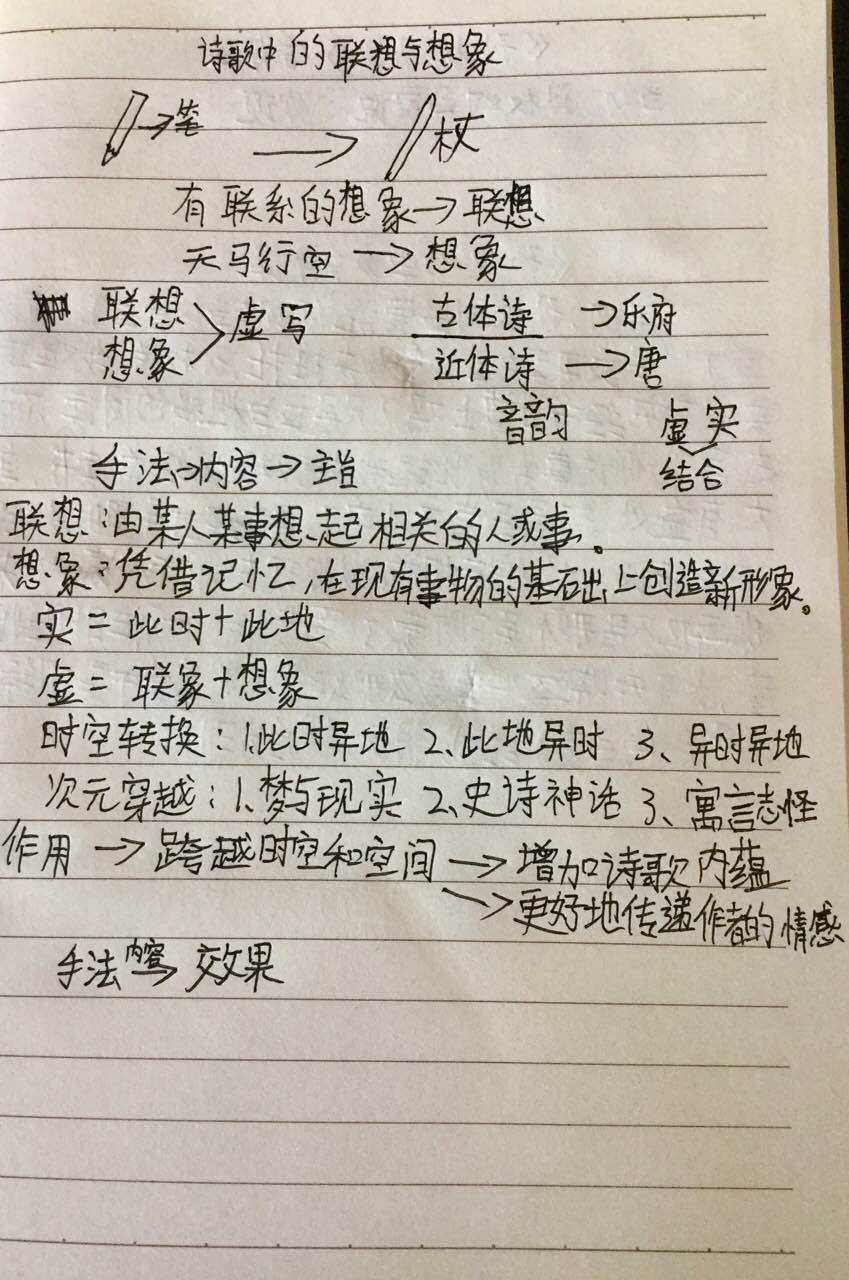 诗歌中的联想与想象
→笔 → 杖
有联系的想象→联想
天马行空→想象
联想 古体诗→乐府
虚写
想象 近体诗→唐
音韵 虚实
手法→内容→主旨 结合
联想:由某人某事想起相关的人或事。
想象:凭借记忆,在现有事物的基础上创造新形象。
实=此时+此地
虚=联象+想象
时空转换:1.此时异地 2、此地异时 3、异时异地
次元穿越:1、梦与现实 2、史诗神话 3、寓言志怪
作用→跨越时空和空间→增加诗歌内蕴
→更好地传递作者的情感
手法 内容→ 效果